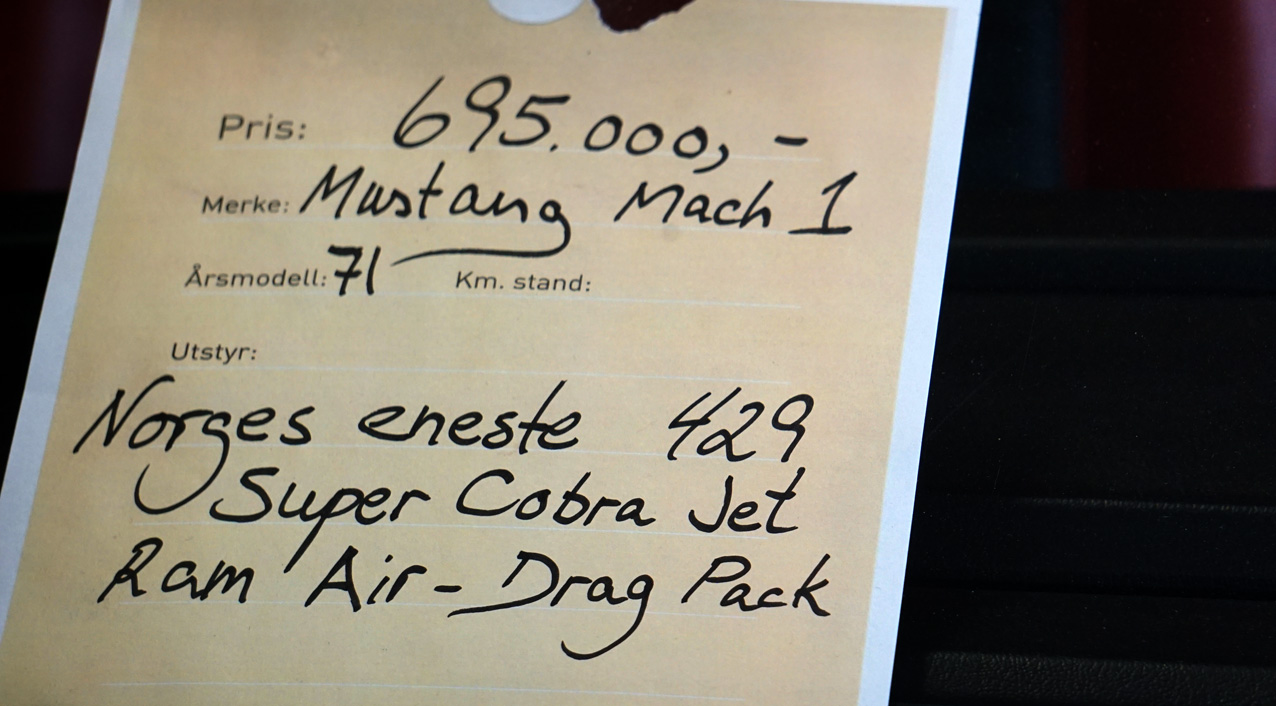 Pris: 695.000,-
Merke: Mustang Mach 1
Årsmodell: 71 Km. stand:
Utstyr:
Norges eneste 429
Super Cobra Jet
Ram Air-Drag Pack